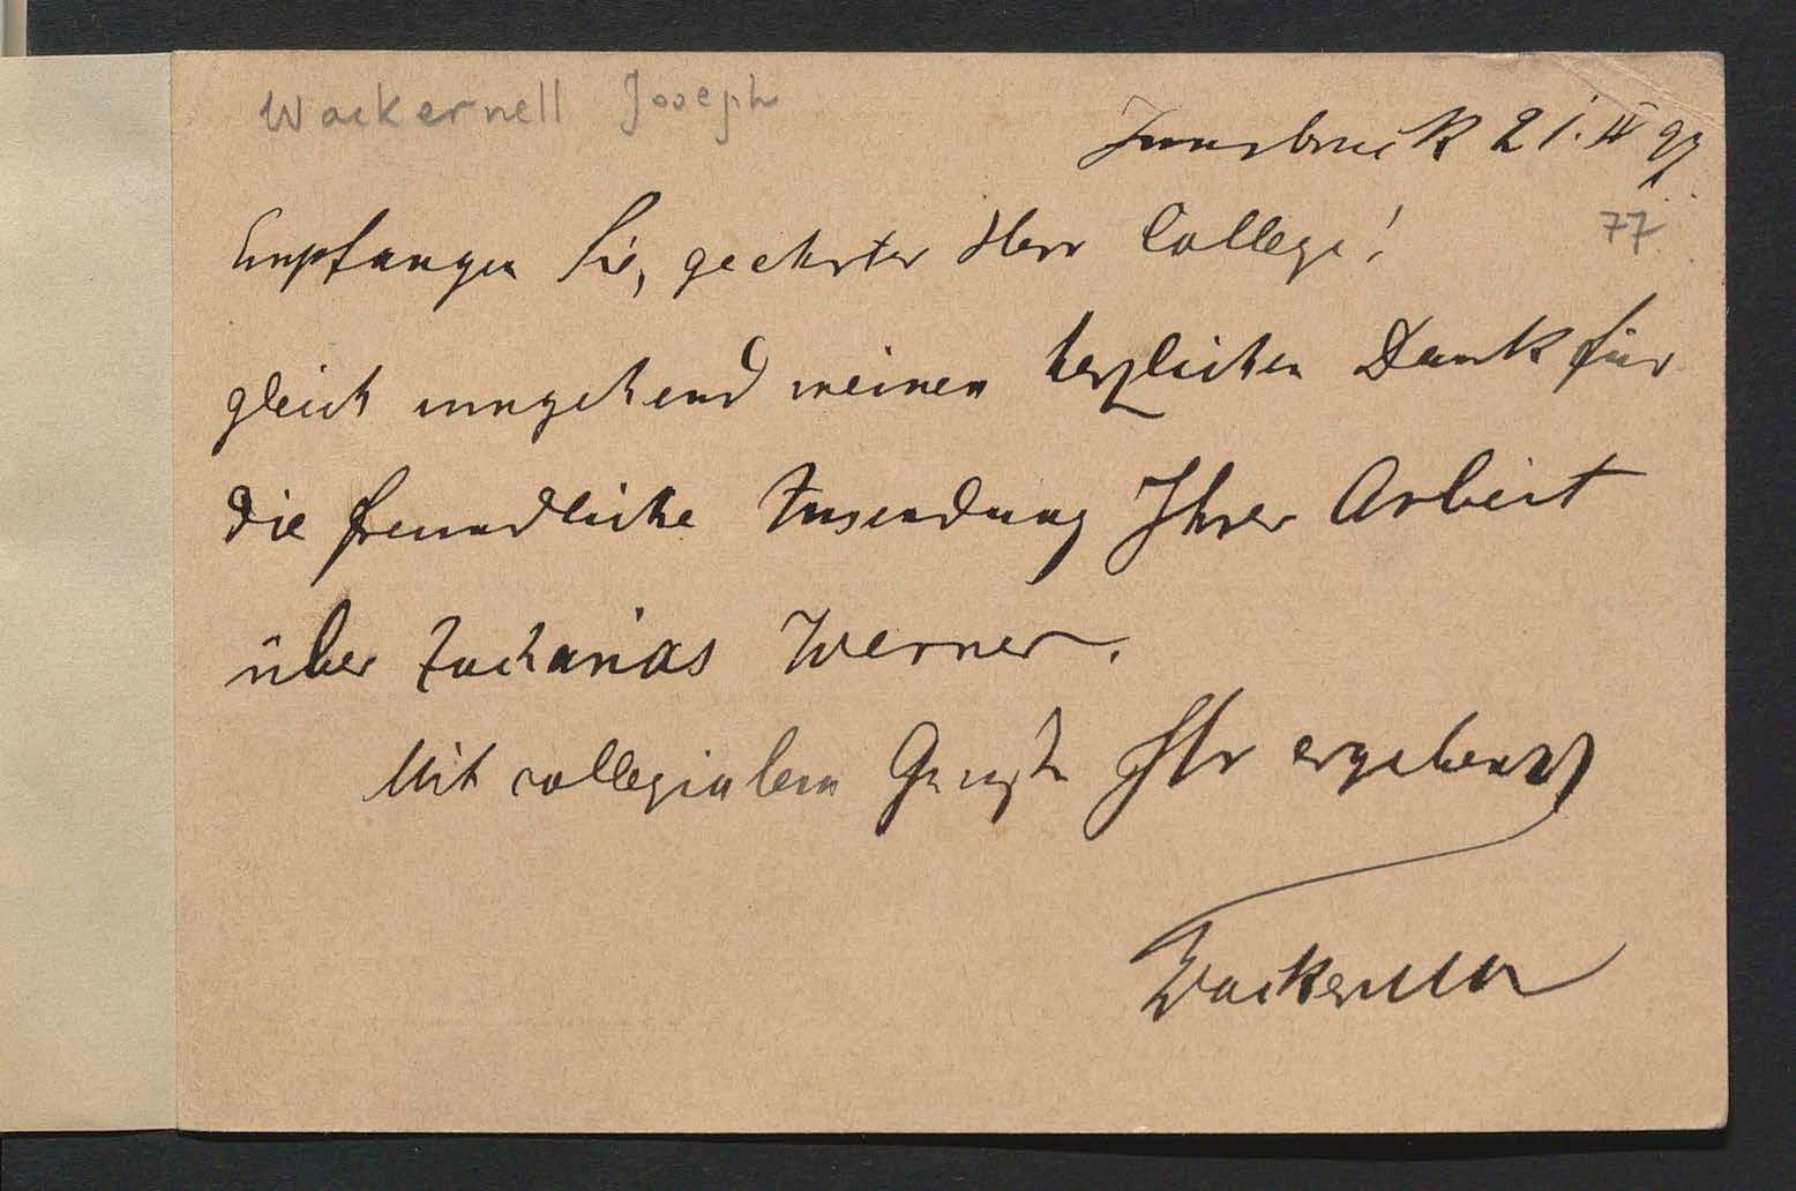 Wackernell Joseph
Innsbruck 21. IV 97
77
Empfangen Sie, geehrter Herr College!
gleich umgehend meinen herzlichen Dank für
die freundliche Zusendung Ihrer Arbeit
über Zacharias Werner.
Mit collegialem Gruße Ihr ergebenst
Wackernell